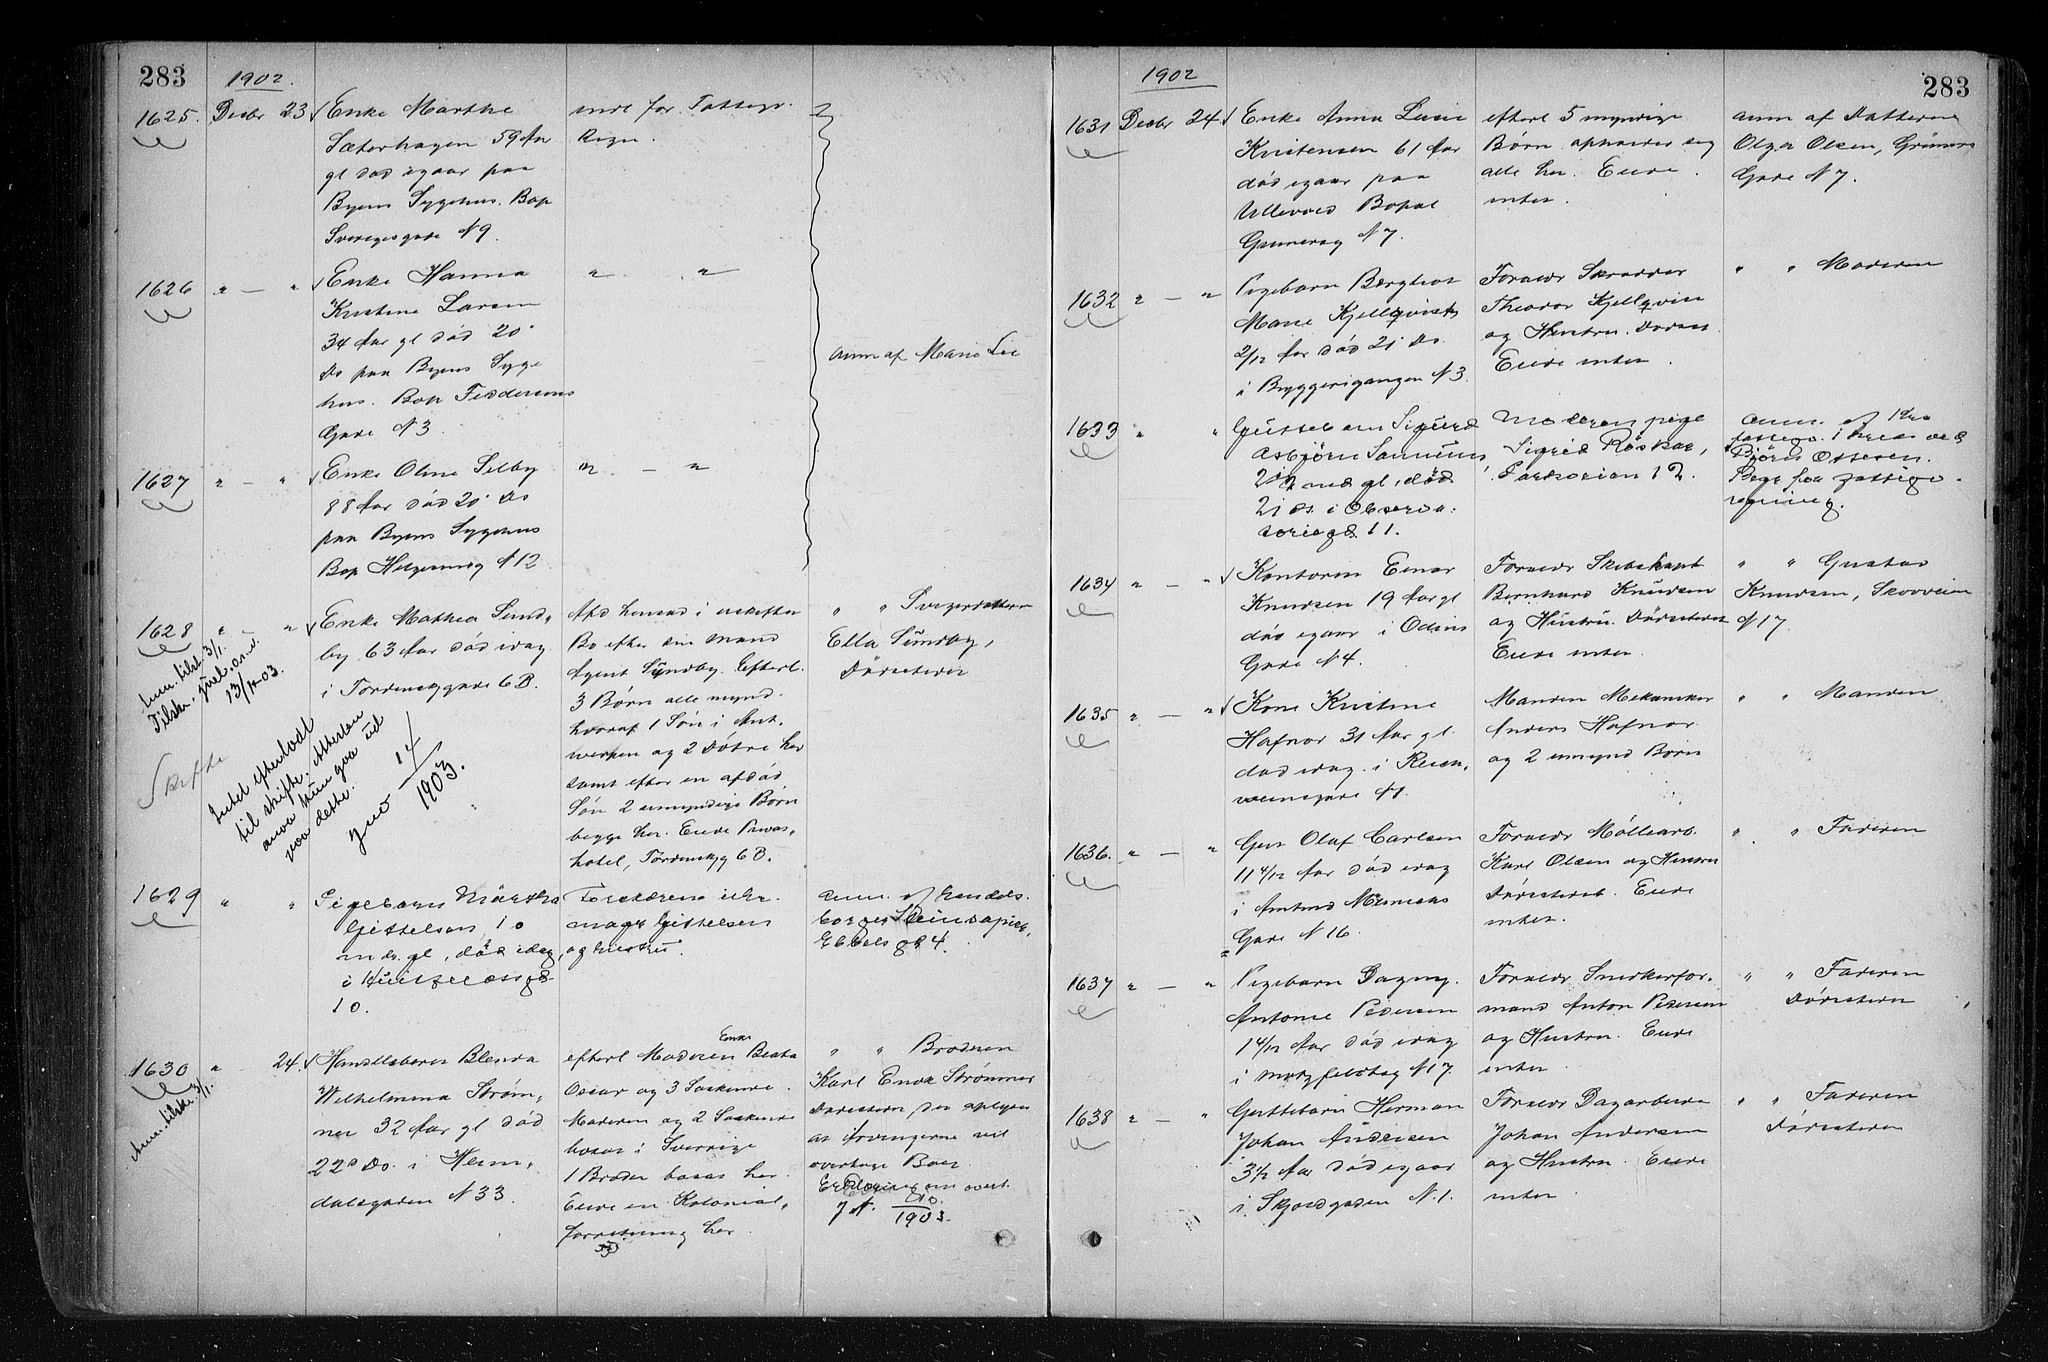 283
1902.
1625. Decbr 23 Enke Marthe
Sæterhagen 59 Aar
gl død igaar paa
Byens Sygehus. Bop
Sverigesgade N 9.
indl for Fattigv.
Regn.
1626 " — " Enke Hanna
Kristine Larsen
34 Aar gl død 20'
Ds paa Byens Syge
hus. Bop Feddersens
Gade N 3.
" "
anm af Marie Lie
1627 " — " Enke Oline Selby
88 Aar død 20' ds
paa Byens Sygehus
Bop Helgesensg N 12
" — "
1628 " — " Enke Mathea Sund,
by 63 Aar død idag
i Tordenskjgade 6 B.
Afd hensad i uskiftet
Bo efter sin Mand
Agent Sundby. Efterl.
3 Børn alle mynd.
hvoraf 1 Søn i Ant,
werpen og 2 Døtre her
samt efter en afdød
Søn 2 umyndige Børn
begge her. Eiede Privat,
hotel, Tordenskjg 6 B.
" " Svigerdatteren
Ella Sundby,
Dødsattest
Anm. tilst. 3/1.
13/1-03.
Skifte
Intet efterladt
til skifte. Attesten
kun gaa ud
paa dette.
14/1903.
1629 " " Pigebarn Märtha
Gittelsen, 10
mdr. gl, død idag,
i Huitfeldtsgd
10.
Forældrene
Gittelsen
og hustru.
anm. af handels.
borger Steinsapir,
Ebbels gd 4.
1630 " 24. Handelsborer Blenda
Wilhelmina Strøm,
ner 32 Aar gl død
22d Ds. i Heim,
dalsgaden N 33.
efterl Moderen Enke Beata
Oscar og 3 Søskende.
Moderen og 2 Søskende
bosat i Sverrige
1 Broder bosat her.
Eiede en Kolonial,
forretning her
" " Broderen
Karl Enok Strømner
Dødsattest, der oplyser
at Arvingerne vil
overtage Boet
Erklæring om overt.
1903.
Anm. tilskr. 3/1.
1902
283
1631 Decbr 24 Enke Anna Lusie
Kristensen 61 Aar
død igaar paa
Ullevold Bopæl
Grunersg N 7.
efterl 5 myndige
Børn opholder sig
alle her. Eiede
intet.
anm af Datteren
Olga Olsen, Grüners
Gade N 7.
1632 " — " Pigebarn Bergliot
Marie Kjellqvist
2/12 Aar død 21' Ds.
i Bryggerigangen N 3.
Forældr Skrædder
Theodor Kjellqvist
og Hustru. Dødsat.
Eiede intet.
" " Moderen
1633 " " Guttebarn Sigurd
Asbjørn
2 1/2 md gl, død
21 ds. i Observa.
toriegd. 11.
Moderen pige
Sigrid Röskar,
12.
anm. af Kra
fattigv. i kred ved
Bjørn Ottesen.
Begr for fattigv.
regning.
1634 " — " Kontorm Einar
Knudsen 19 Aar gl
død igaar i Odins
Gade N 4.
Forældr Skibskapt
Bernhard Knudsen
og Hustru. Dødsattest
Eiede intet.
" " Gustav
Knudsen, Skovveien
N 17.
1635 " — " Kone Kristine
Hafnor 31 Aar gl.
død idag i Reien,
vormsgade N 1.
Manden Mekaniker
Anders Hafnor
og 2 umynd Børn
" " Manden
1636. " — " Gut Olaf Carlsen
11 4/12 Aar død idag
i Amtmd Meinichs
Gade N 16.
Forældr Møllearb.
Karl Olsen og Hustru
Dødsattest. Eiede
intet.
" " Faderen
1637 " — " Pigebarn Dagny
Antonie Pedersen
1 4/12 Aar død idag
i Motzfeldtsg N 17.
Forældr Snedkerfor.
mand Anton Pedersen
og Hustru. Eiede
intet.
" " Faderen
Dødsattest
1638 " — " Guttebarn Herman
Johan Andersen
3 1/2 Aar død igaar
i Skjoldgaden N. 1.
Forældr Dagarbeider
Johan Andersen
og Hustru. Eiede
intet.
" " Faderen
Dødsattest